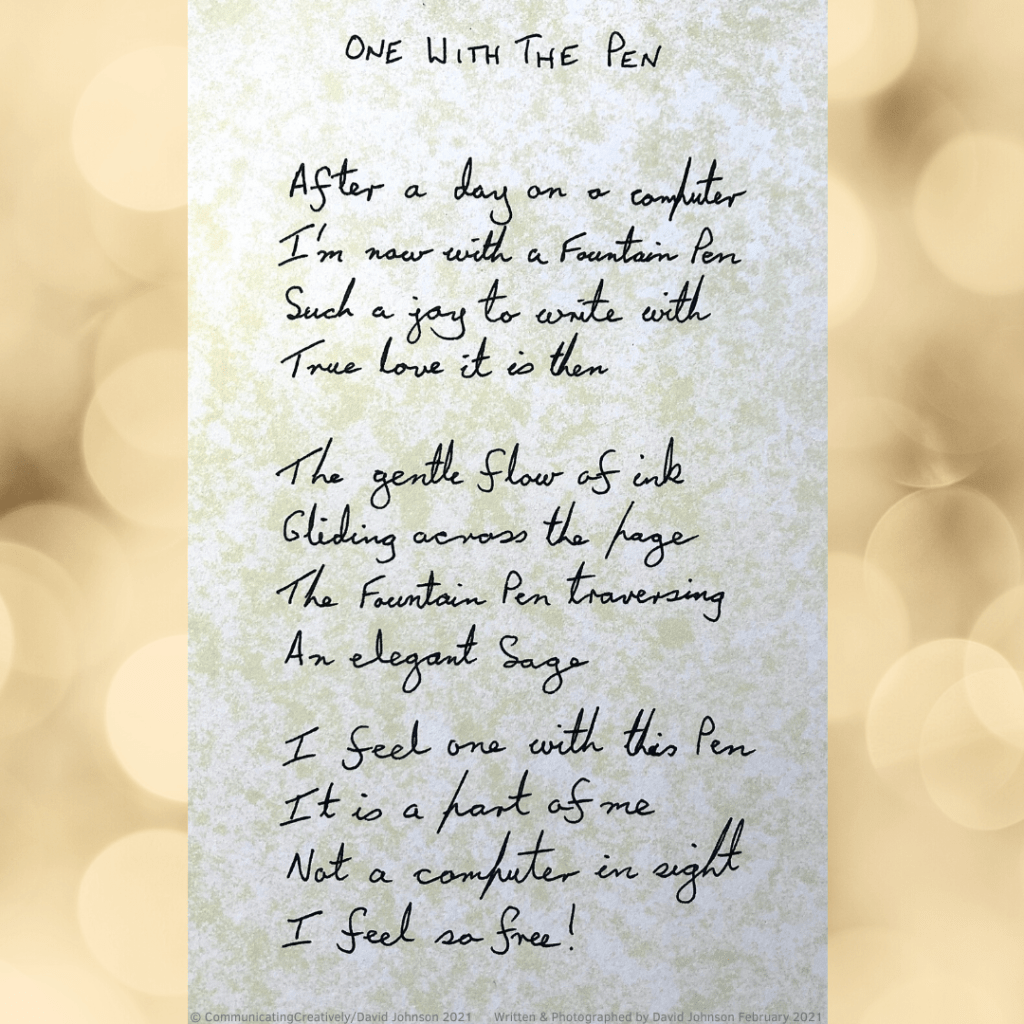 ONE WITH THE PEN
After a day on a computer
I'm now with a Fountain Pen
Such a joy to write with
True love it is then
The gentle flow of ink
Gliding across the page
The Fountain Pen traversing
An elegant Sage
I feel one with this Pen
It is a part of me
Not a computer in sight
I feel so free!
© CommunicatingCreatively/David Johnson 2021 Written & Photographed by David Johnson February 2021